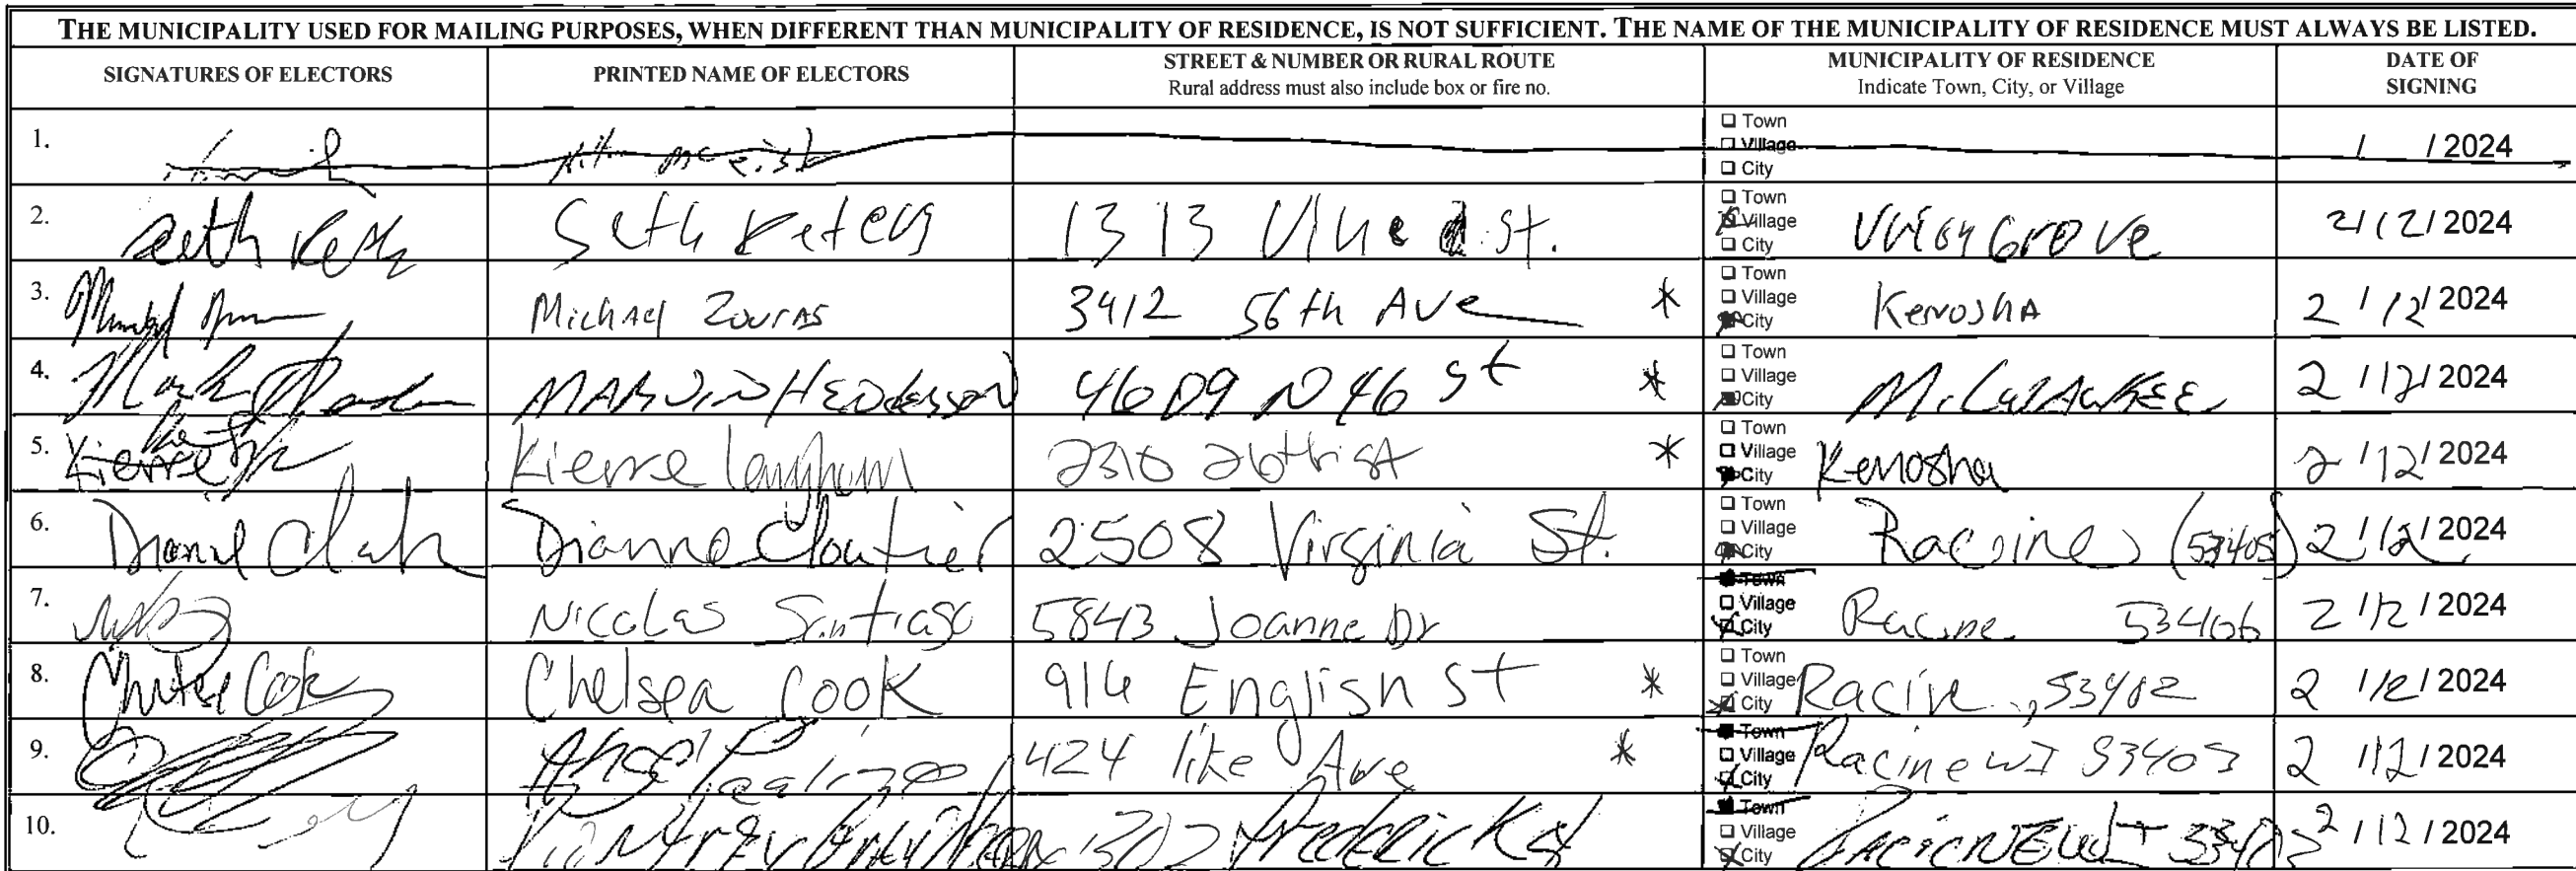 THE MUNICIPALITY USED FOR MAILING PURPOSES, WHEN DIFFERENT THAN MUNICIPALITY OF RESIDENCE, IS NOT SUFFICIENT. THE NAME OF THE MUNICIPALITY OF RESIDENCE MUST ALWAYS BE LISTED.
SIGNATURES OF ELECTORS PRINTED NAME OF ELECTORS STREET & NUMBER OR RURAL ROUTE Rural address must also include box or fire no. MUNICIPALITY OF RESIDENCE Indicate Town, City, or Village DATE OF SIGNING
1. ☐ Town ☐ Village ☐ City / / 2024
2. Seth Peters 1313 Vine St. ☐ Town ☒ Village ☐ City Union Grove 2/12/2024
3. Michael Zouras 3412 56th Ave * ☐ Town ☐ Village ☒ City Kenosha 2/12/2024
4. MARVIN HENDERSON 4609 N 46 St * ☐ Town ☐ Village ☒ City MILWAUKEE 2/12/2024
5. Kierre 26th St * ☐ Town ☐ Village ☒ City Kenosha 2/12/2024
6. Dianne Cloutier 2508 Virginia St. ☐ Town ☐ Village ☒ City Racine (53405) 2/12/2024
7. Nicolas Santiago 5843 Joanne Dr ☐ Town ☐ Village ☒ City Racine 53406 2/12/2024
8. Chelsea Cook Chelsea Cook 916 English St * ☐ Town ☐ Village ☒ City Racine, 53402 2/12/2024
9. 424 Ave * Town ☐ Village ☒ City Racine WI 53403 2/12/2024
10. Frederick St Town ☐ Village ☒ City 2/12/2024